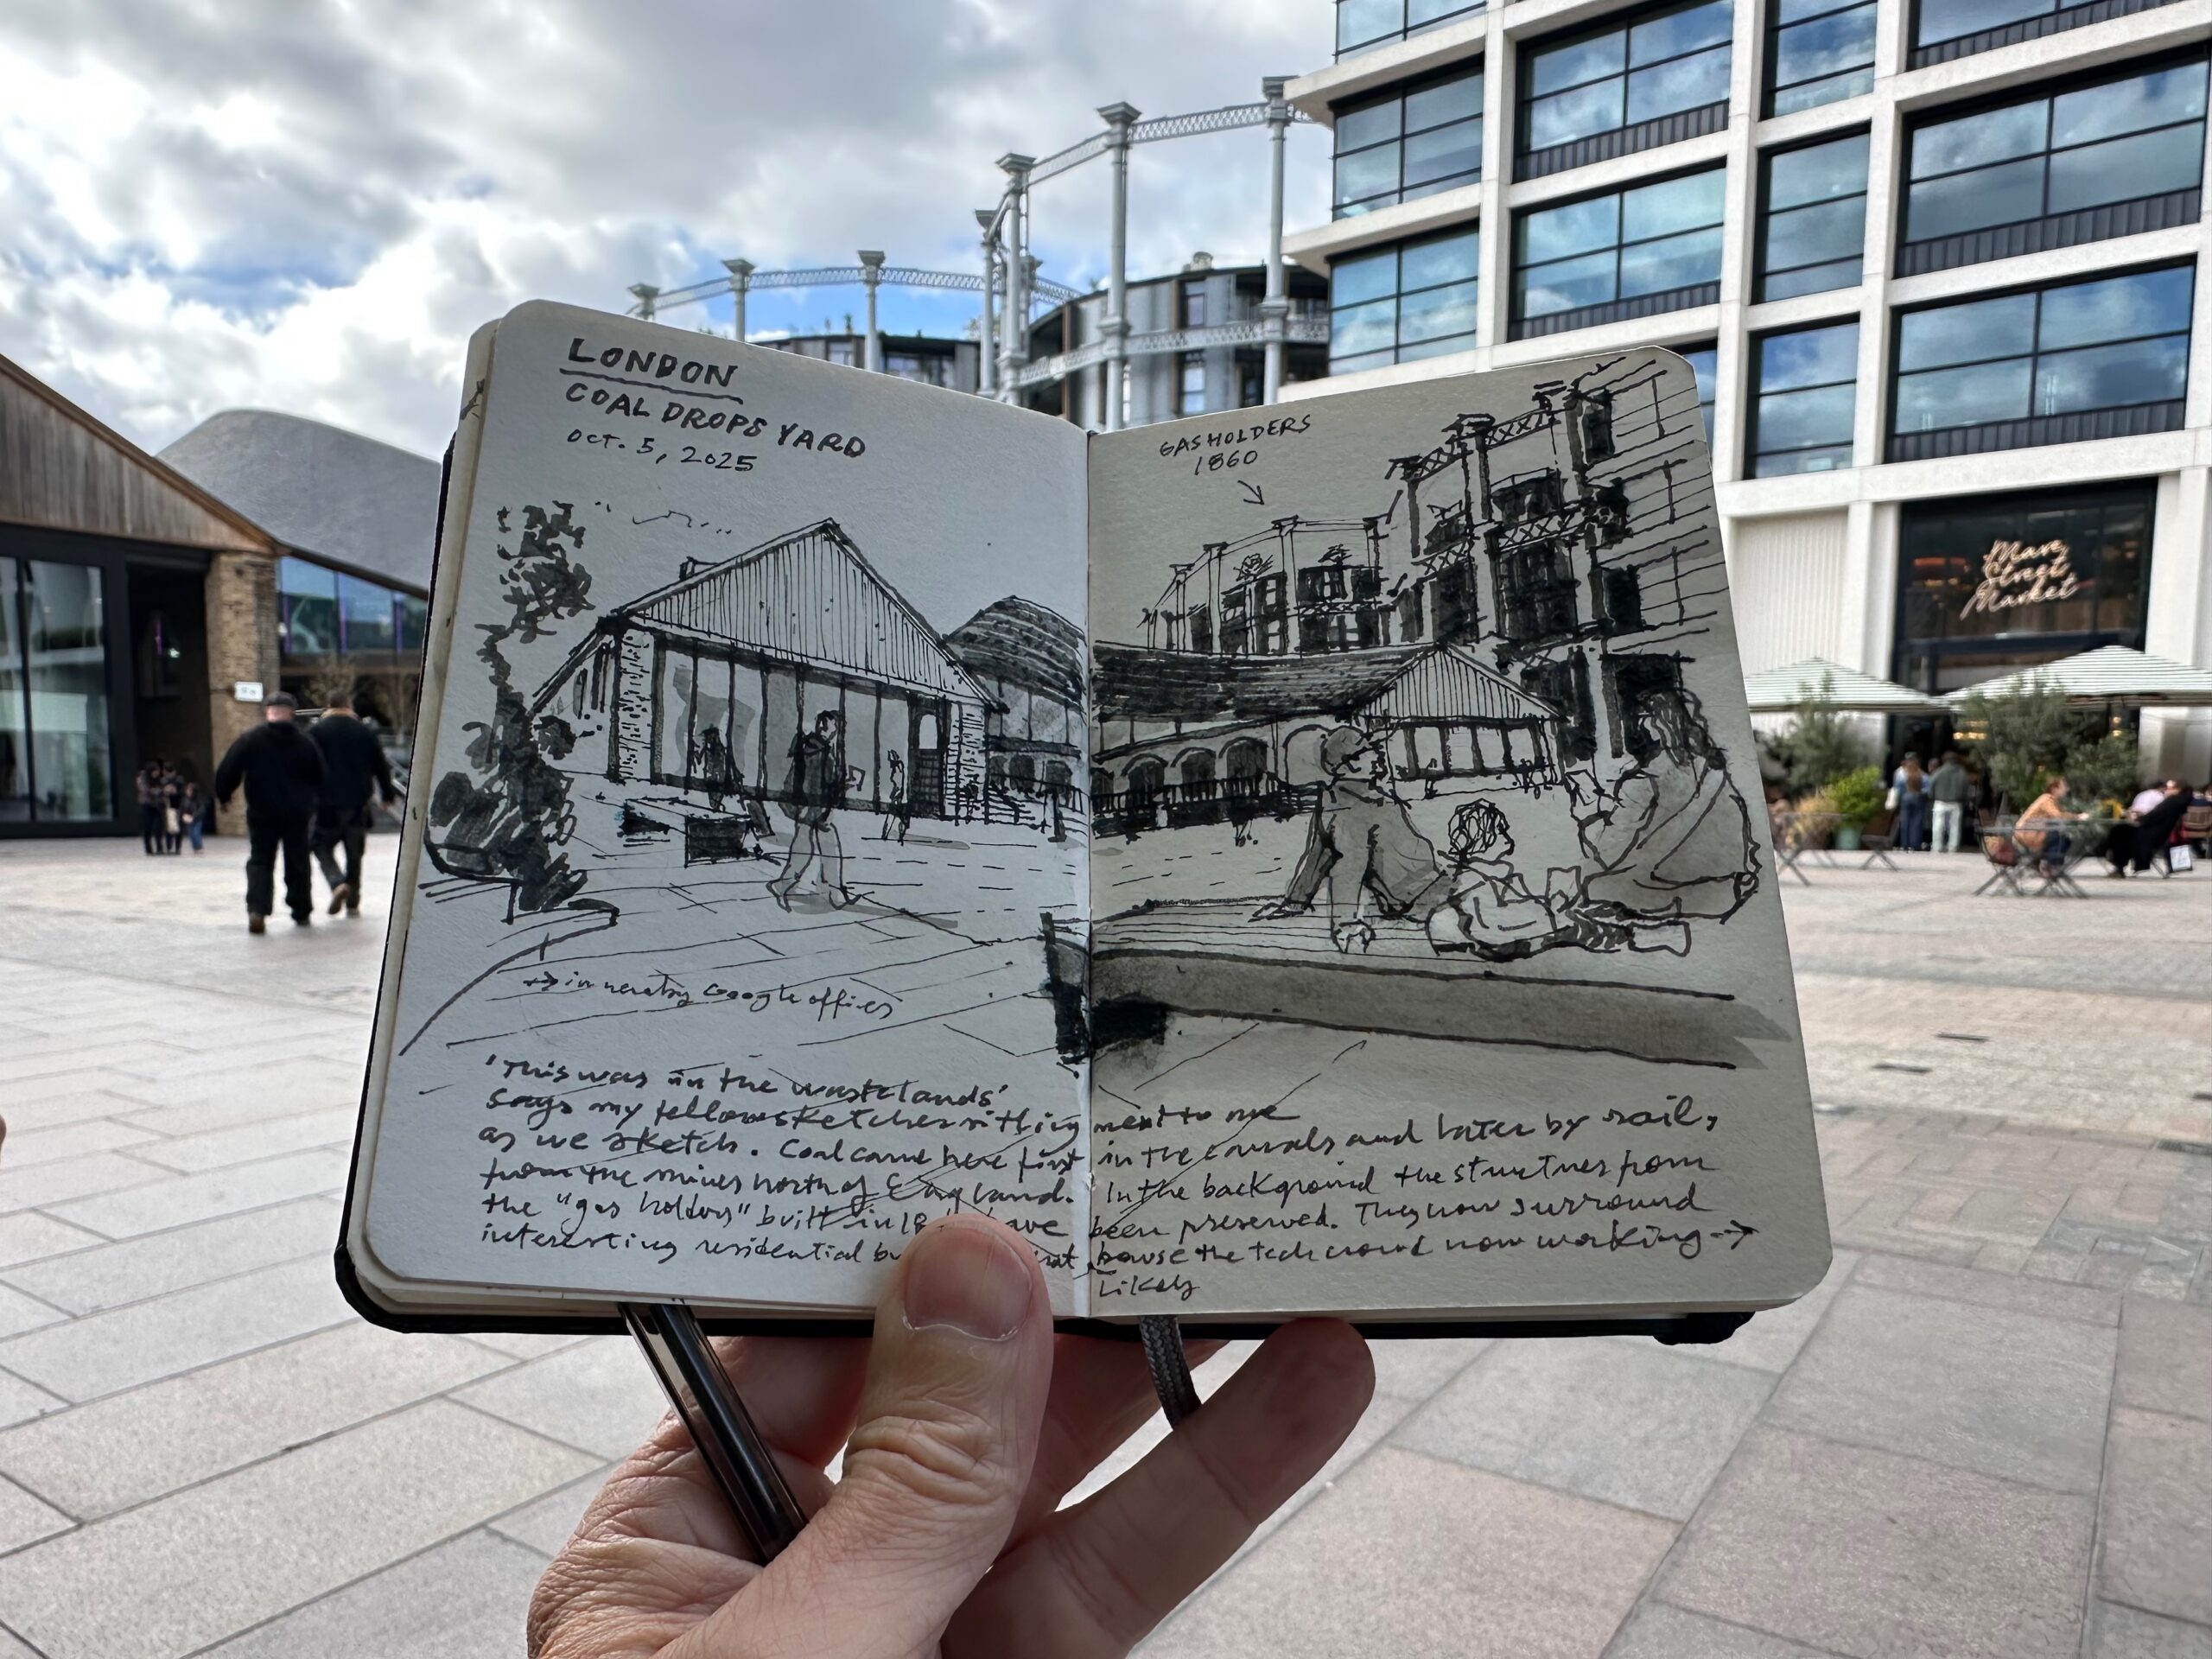 LONDON
COAL DROPS YARD
OCT. 5, 2025
GASHOLDERS
1860
Mare
Street
Market
→ in nearby Google offices
'This was in the wastelands'
says my fellow sketcher sitting next to me
as we sketch. Coal came here first in the canals and later by rail,
from the mines north of England. In the background the structures from
the "gas holders" built in 18 have been preserved. They now surround
interesting residential that house the tech crowd now working →
Likely